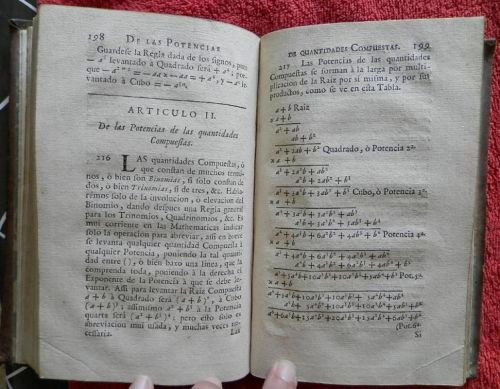 198 DE LAS POTENCIAS
Guardese la Regla dada de los signos, pues
— a² levantado à Quadrado serà + a⁴; por-
que
vantado à Cubo =
ARTICULO II.
De las Potencias de las quantidades
Compuestas.
216 LAS quantidades Compuestas, ò
que constan de muchos termi-
nos, ò bien Binomias, si solo constan de
dos, ò bien Trinomias, si de tres, &c. Habla-
rèmos solo de la involucion, ò elevacion del
Binomio, dando despues una Regla general
para los Trinomios, Quadrinomios, &c. Es
mui corriente en las Mathematicas indicar
solo la operacion para abreviar, assi en bort
se levanta qualquier quantidad Compuesta à
qualquier Potencia, poniendo la tal quanti
dad entre (), ò bien baxo una linea, que la
comprenda toda, poniendo à la derecha el
Exponente de la Potencia à que se debe le-
vantar. Assi para levantar la Raiz Compuesta
a + b à Quadrado serà (a + b)², ò à Cubo
(a + b)³; assimismo a² + b² à la Potencia
quarta serà (a² + b²)⁴; pero esto solo es
abreviacion mui usada, y muchas veces ne-
cessaria.
Las
DE QUANTIDADES COMPUESTAS. 199
217 Las Potencias de las quantidades
Compuestas se forman à la larga por multi-
plicacion de la Raiz por sì misma, y por sus
productos, como se ve en esta Tabla.
a + b Raiz
x a + b
a² + ab
ab + b²
a² + 2ab + b² Quadrado, ò Potencia 2ª.
x a + b
a³ + 2a²b + ab²
a²b + 2ab² + b³
a³ + 3a²b + 3ab² + b³ Cubo, ò Potencia 3ª.
x a + b
a⁴ + 3a³b + 3a²b² + ab³
a³b + 3a²b² + 3ab³ + b⁴
a⁴ + 4a³b + 6a²b² + 4ab³ + b⁴ Potencia 4ª.
x a + b
a⁵ + 4a⁴b + 6a³b² + 4a²b³ + ab⁴
a⁴b + 4a³b² + 6a²b³ + 4ab⁴ + b⁵
a⁵ + 5a⁴b + 10a³b² + 10a²b³ + 5ab⁴ + b⁵ Pot. 5ª.
x a + b
a⁶ + 5a⁵b + 10a⁴b² + 10a³b³ + 5a²b⁴ + ab⁵
a⁵b + 5a⁴b² + 10a³b³ + 10a²b⁴ + 5ab⁵ + b⁶
a⁶ + 6a⁵b + 15a⁴b² + 20a³b³ + 15a²b⁴ + 6ab⁵ + b⁶
(Pot. 6ª.
Si